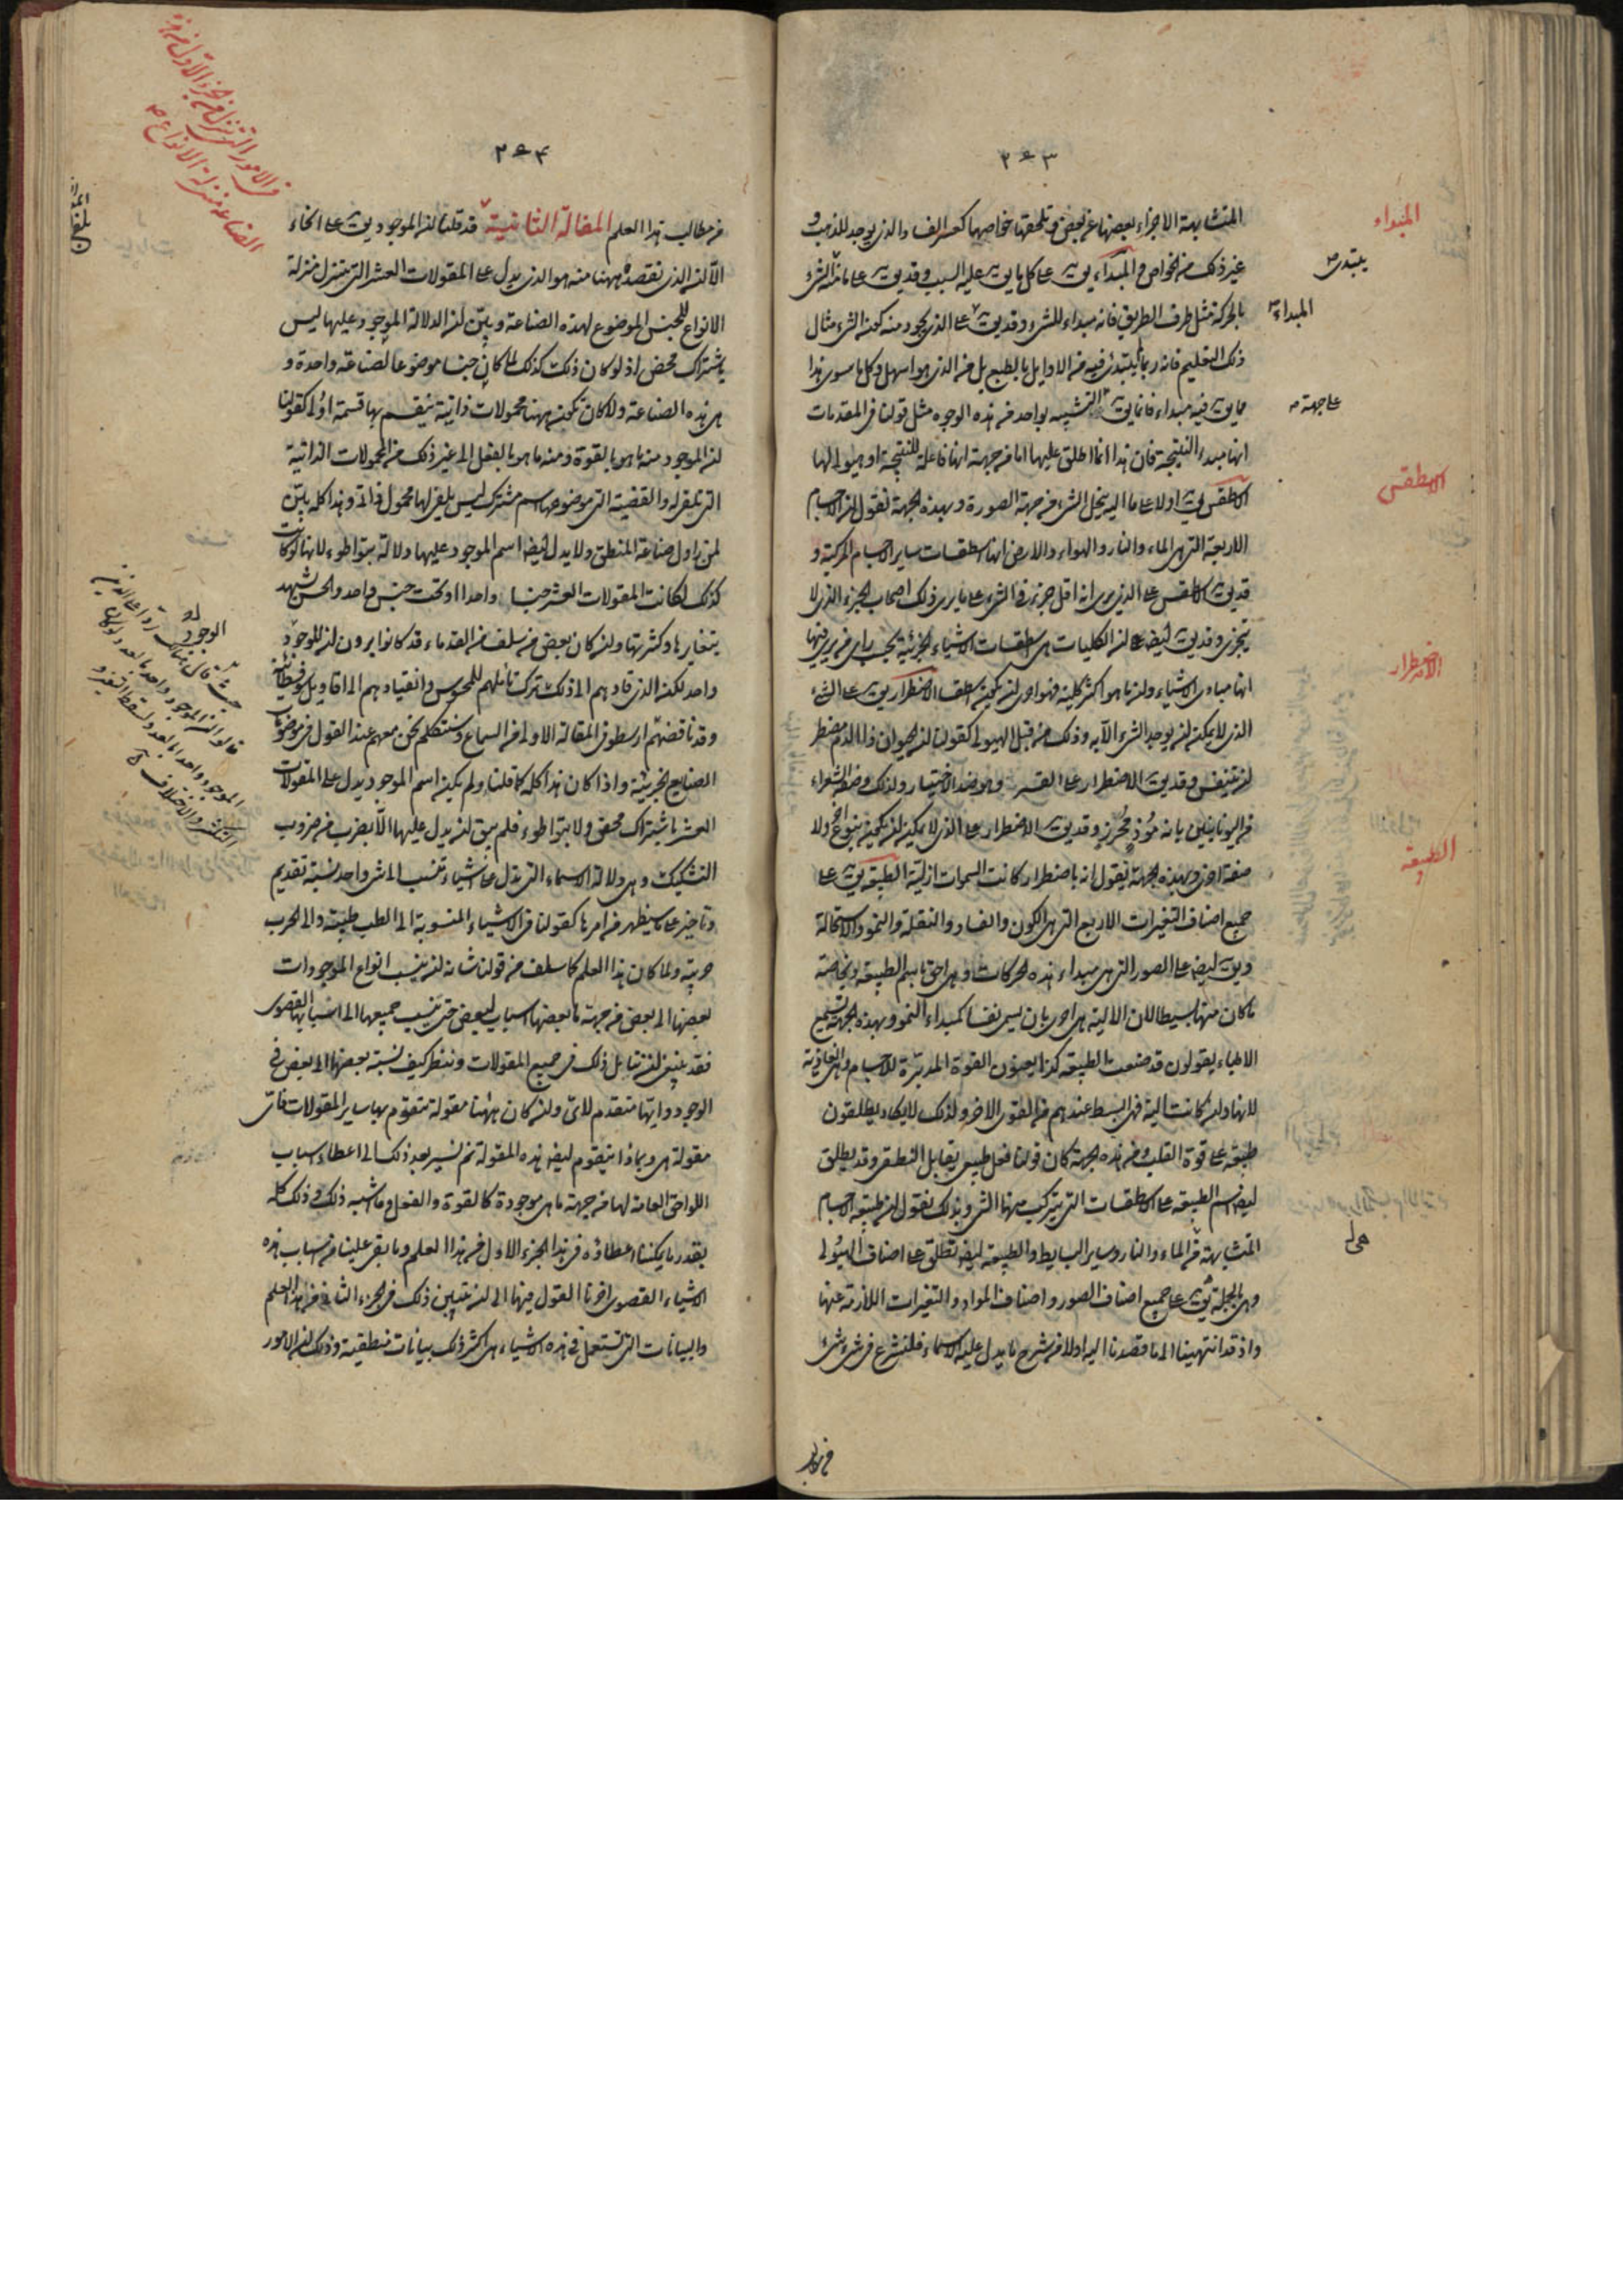 ٢٠٣
المتشابهة الاجزاء بعضها عن بعض وتلحقها خواصها كعسر الف والذى يوجد للذهب و
غير ذلك من الخواص و المبداء يق على كل ما يق عليه السبب وقد يق على ما منه الشىء
بالحركة مثل طرف الطريق فانه مبداء للشىء وقد يق على الذى يجود منه كون الشىء مثال
ذلك التعليم فانه ربما لم يبتدئ فيه من الاوايل بالطبع بل من الذى هو اسهل وكل ما سوى هذا
مما يق فيه مبداء فانما يق بالتشبيه بواحد من هذه الوجوه مثل قولنا فى المقدمات
انها مبداء النتيجة فان هذا انما اطلق عليها اما من جهة انها فاعلة للنتيجة او هيولى لها
الاسطقس يق اولا على ما اليه ينحل الشىء من جهة الصورة وبهذه الجهة نقول ان الاجسام
الاربعة التى هى الماء والنار والهواء والارض انها اسطقسات ساير الاجسام المركبة و
قد يق اسطقس على الذى يرى انه اقل جزء فى الشىء على ما يرى ذلك اصحاب الجزء الذى لا
يتجزى وقد يق ايضا على ان الكليات هى اسطقسات الاشياء الجزئية بحسب راى من يرى فيها
انها مبادى الاشياء وان ما هو اكثر كلية فهو احرى ان يكون اسطقسا الاضطرار يق على الشىء
الذى لا يمكن ان يوجد الشىء الا به وذلك من قبل الهيولى كقولنا ان الحيوان ذا الدم مضطر
ان يتنفس وقد يق الاضطرار على القسر وهو ضد الاختيار ولذلك وصفه الشعراء
من اليونانيين بانه موذ محزن وقد يق الاضطرار على الذى لا يمكن ان يكون بنوع اخر ولا
صفة اخرى وبهذه الجهة نقول انه باضطرار كانت السموات ازلية الطبيعة يق على
جميع اصناف التغيرات الاربع التى هى الكون والفساد والنقلة والنمو والاستحالة
ويق ايضا على الصور التى هى مبداء هذه الحركات وهى احق باسم الطبيعة وبخاصة
ما كان منها بسيطا لان الالية هى احرى بان يسمى نفسا كمبداء النمو وبهذه الجهة تسمع
الاطباء يقولون قد صنعت الطبيعة كذا يعنون القوة المدبرة للاجسام وهى الغاذية
لانها وان كانت الية فهى ابسط عندهم من القوى الاخر ولذلك لا يكاد يطلقون
طبيعة على قوة القلب ومن هذه الجهة كان قولنا فعل طبيعى يقابل النطقى وقد يطلق
ايضا اسم الطبيعة على الاسطقسات التى يتركب منها الشىء وبذلك نقول ان طبيعة الاجسام
المتشابهة من الماء والنار وساير البسايط والطبيعة ايضا تطلق على اصناف الهيولى
وهى بالجملة يق على جميع اصناف الصور واصناف المواد والتغيرات اللازمة عنها
واذ قد انتهينا الى ما قصدنا اليه اولا من شرح ما يدل عليه الاسماء فلنشرع فى شىء شىء
المبداء
يبتدى
المبداء
على جهة
الاسطقس
الاضطرار
الطبيعة
٢٠٤
من مطالب هذا العلم المقالة الثانية قد قلنا ان الموجود يق على انحاء
الا ان الذى نقصده ههنا منه هو الذى يدل على المقولات العشر التى تتنزل منزلة
الانواع للجنس الموضوع لهذه الصناعة وبين ان الدلالة الموجود عليها ليس
باشتراك محض اذ لو كان ذلك كذلك لما كان جنسا موضوعا لصناعة واحدة و
هى هذه الصناعة ولا كان تكون ههنا محمولات ذاتية ينقسم بها قسمة اولى كقولنا
ان الموجود منه ما هو بالقوة ومنه ما هو بالفعل الى غير ذلك من المحمولات الذاتية
التى تلفى له والقضية التى موضوعها اسم مشترك ليس يلفى لها محمول ذاتى وهذا كله بين
لمن زاول صناعة المنطق ولا يدل ايضا اسم الموجود عليها دلالة بتواطوء لانها لو كانت
كذلك لكانت المقولات العشر جنسا واحدا او تحت جنس واحد والحس يشهد
بتغايرها وكثرتها وان كان بعض من سلف من القدماء قد كانوا يرون ان الموجود
واحد لكن الذى قادهم الى ذلك ترك تاملهم للمحسوس وانقيادهم الى اقاويل سوفسطائية
وقد ناقضهم ارسطو فى المقالة الاولى من السماع وسنتكلم نحن معهم عند القول فى موضوعات
الصنايع الجزيئة واذا كان هذا كله كما قلنا ولم يكن اسم الموجود يدل على المقولات
العشر باشتراك محض ولا بتواطوء فلم يبق ان يدل عليها الا بضرب من ضروب
التشكيك وهى دلالة الاسماء التى تدل على اشياء تنسب الى شىء واحد نسبة تقديم
وتاخير على ما سيظهر من امرها كقولنا فى الاشياء المنسوبة الى الطب طبية والى الحرب
حربية ولما كان هذا العلم كما سلف من قولنا شانه ان ينسب انواع الموجودات
بعضها الى بعض من جهة ما بعضها اسباب لبعض حتى ينسب جميعها الى اسبابها القصوى
فقد ينبغى ان نتامل ذلك فى جميع المقولات وننظر كيف نسبة بعضها الى بعض فى
الوجود وايها متقدم لاى وان كان ههنا مقولة تتقوم بها ساير المقولات فاى
مقولة هى وبماذا يتقوم ايضا هذه المقولة ثم نسير بعد ذلك الى اعطاء اسباب
اللواحق العامة لها من جهة ما هى موجودة كالقوة والفعل وما اشبه ذلك وذلك كله
بقدر ما يمكننا اعطاؤه فى هذا الجزء الاول من هذا العلم وما بقى علينا من اسباب هذه
الاشياء القصوى اخرنا القول فيها الى ان نتبين ذلك فى الجزء الثانى من هذا العلم
والبيانات التى تستعمل فى هذه الاشياء هى اكثر ذلك بيانات منطقية وذلك ان الامور